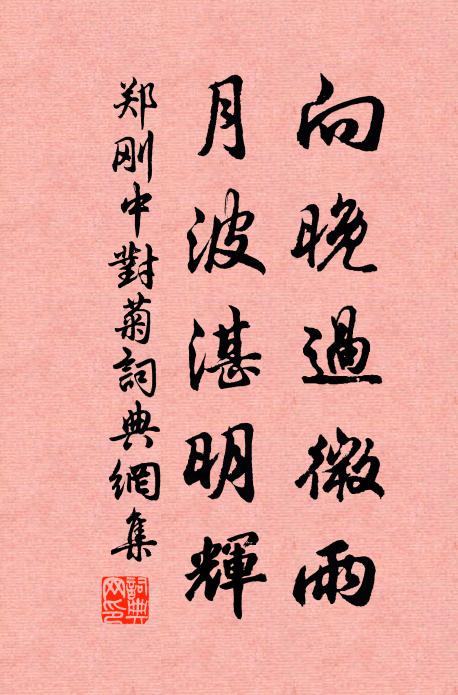 向晚過微雨
月波湛明輝
郑刚中對菊詞典網集
詞典網印